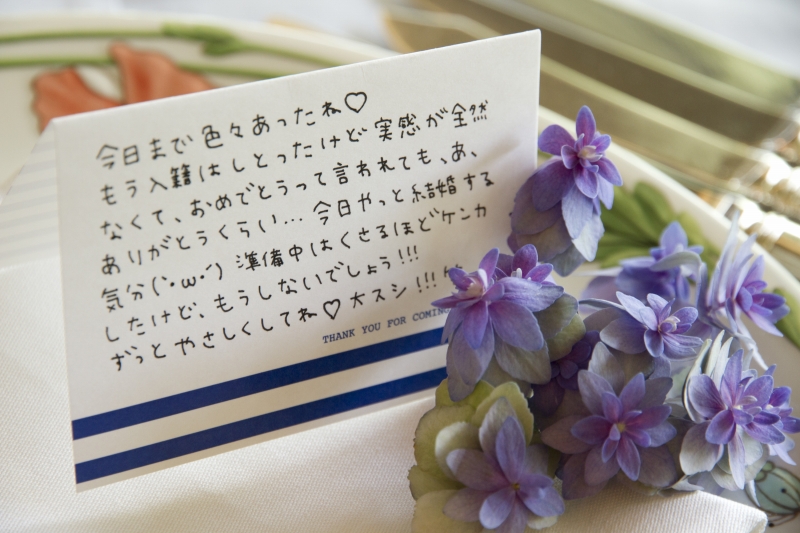 今日まで色々あったね♡
もう入籍はしとったけど実感が全然
なくて、おめでとうって言われても、あ、
ありがとうくらい…今日やっと結婚する
気分(・ω・) 準備中はくさるほどケンカ
したけど、もうしないでしょう!!!
ずっとやさしくしてね♡大スシ!!!
THANK YOU FOR COMING